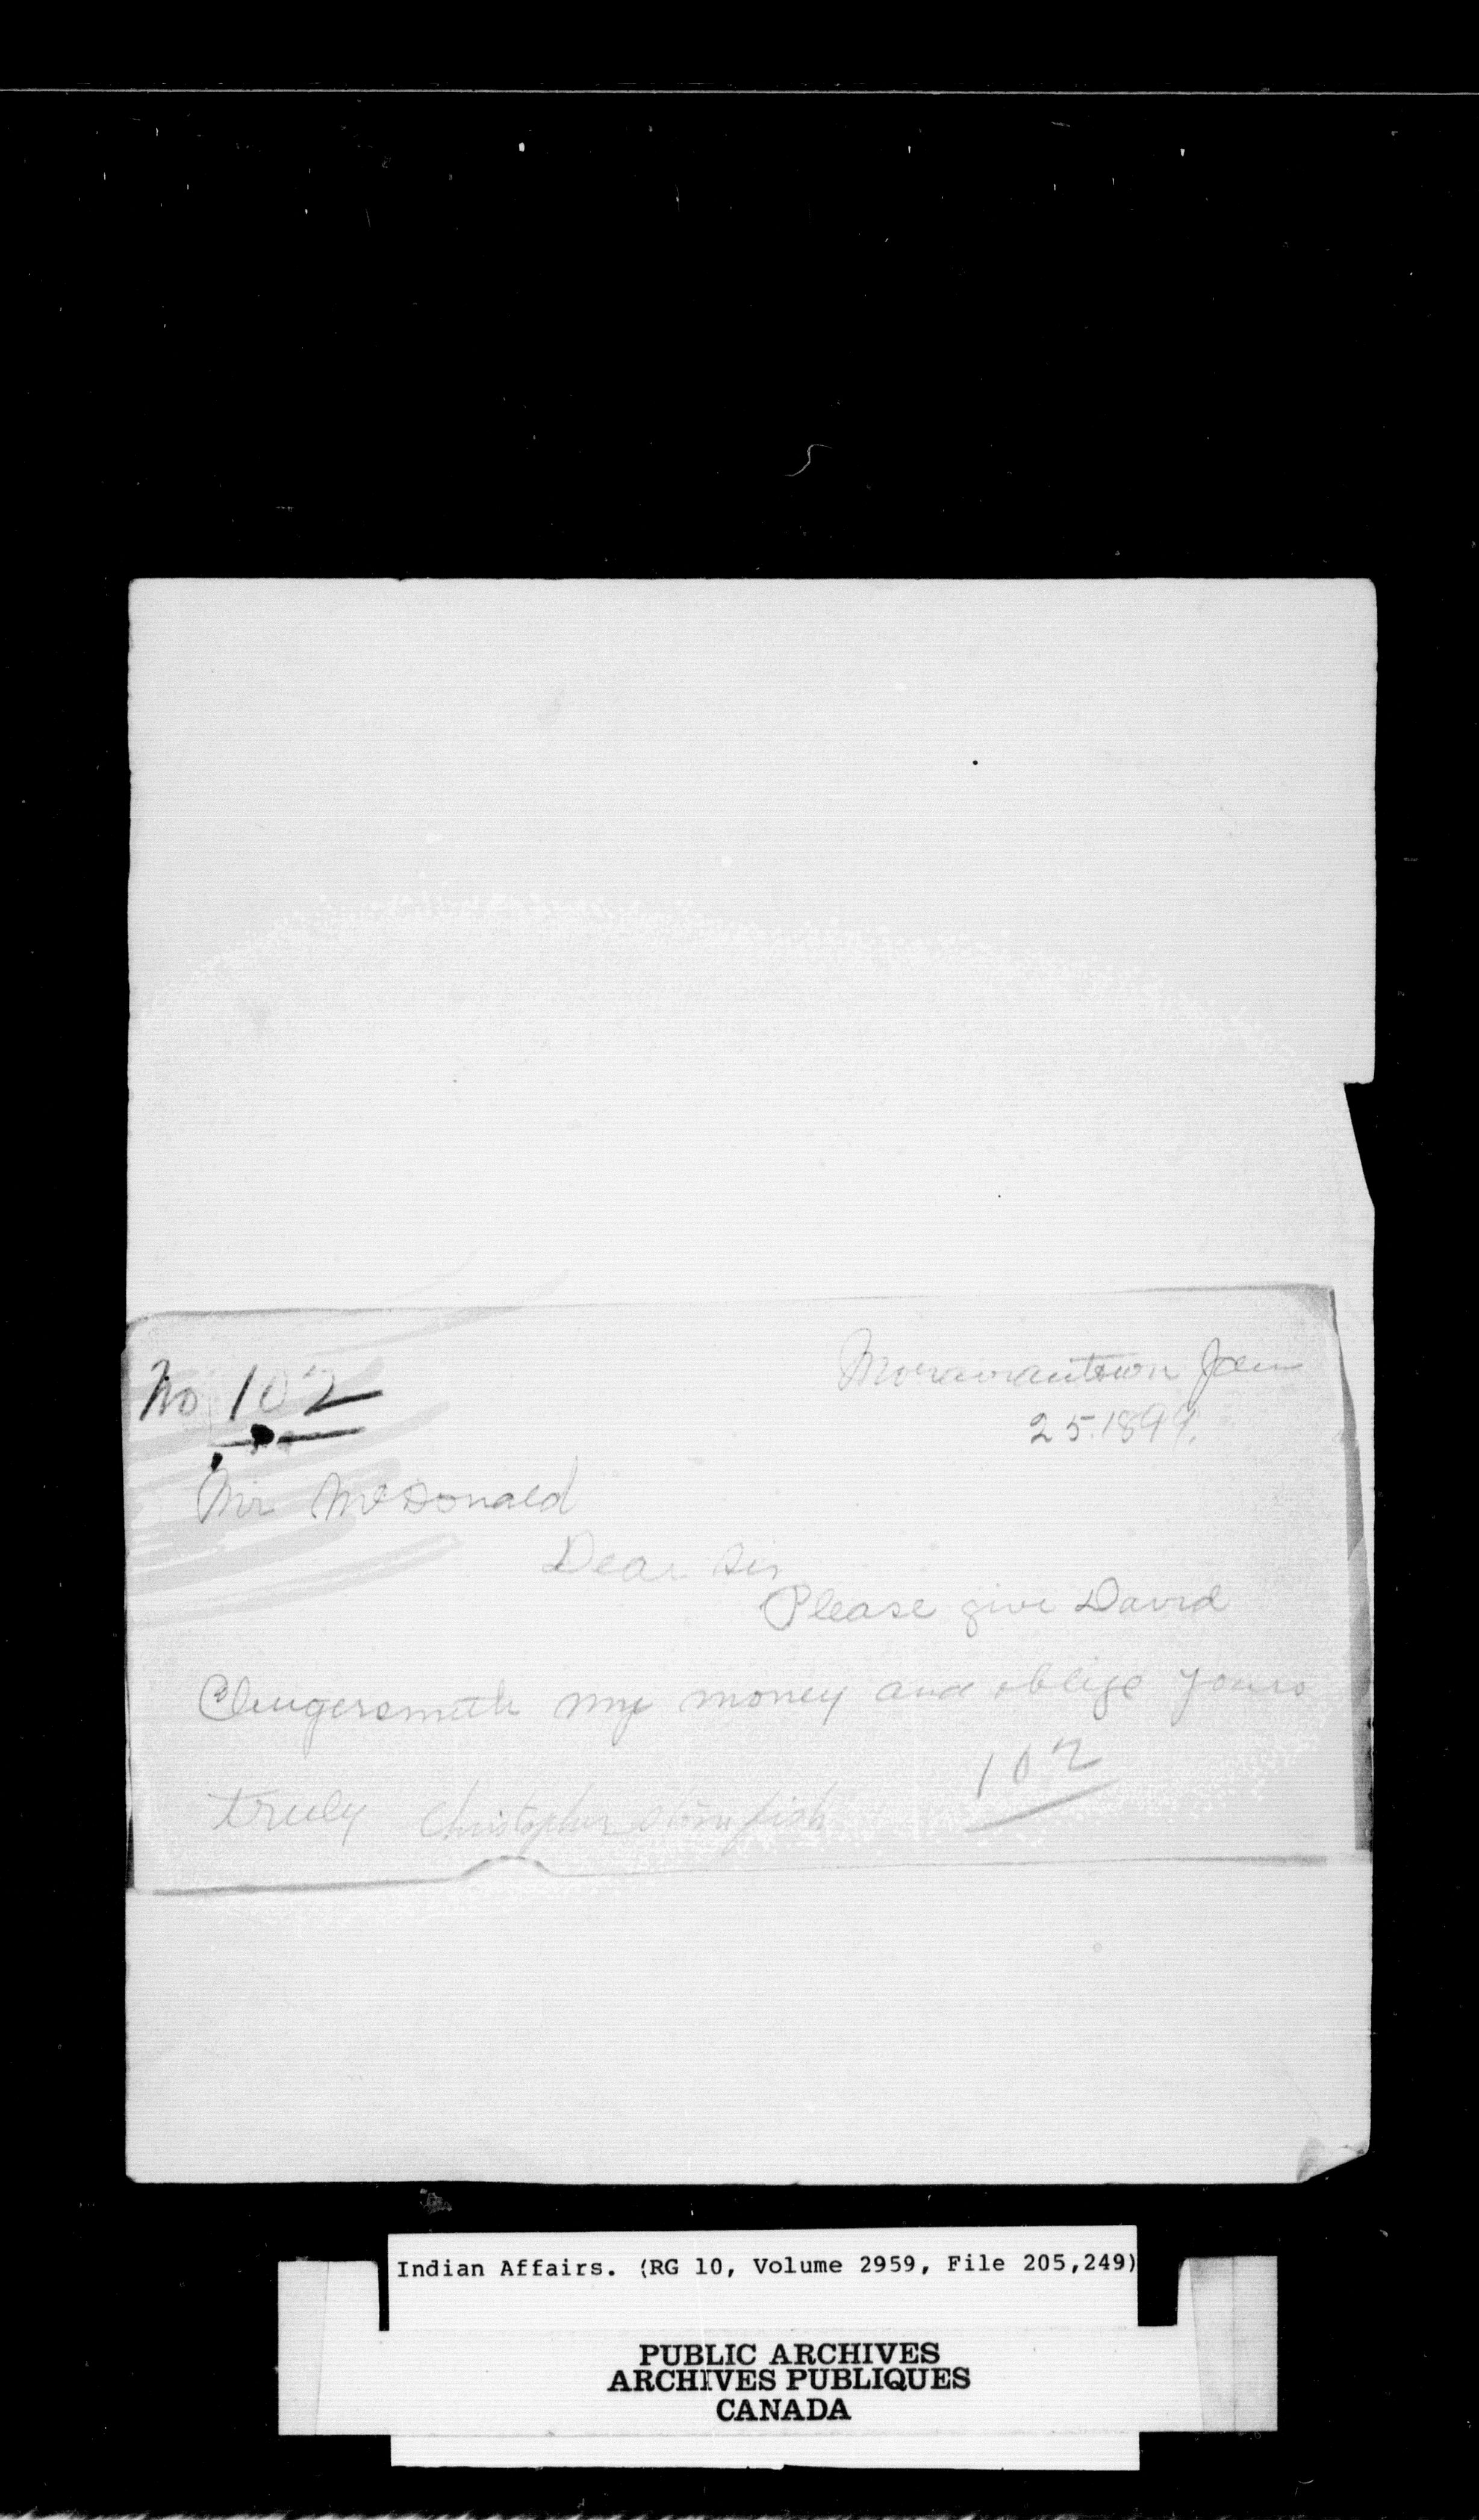 No 102
Moraviantown Jan
25. 1899.
Mr McDonald
Dear Sir
Please give David
Clingersmith my money and oblige yours
102
truly Christopher Stonefish
Indian Affairs. (RG 10, Volume 2959, File 205,249)
PUBLIC ARCHIVES
ARCHIVES PUBLIQUES
CANADA